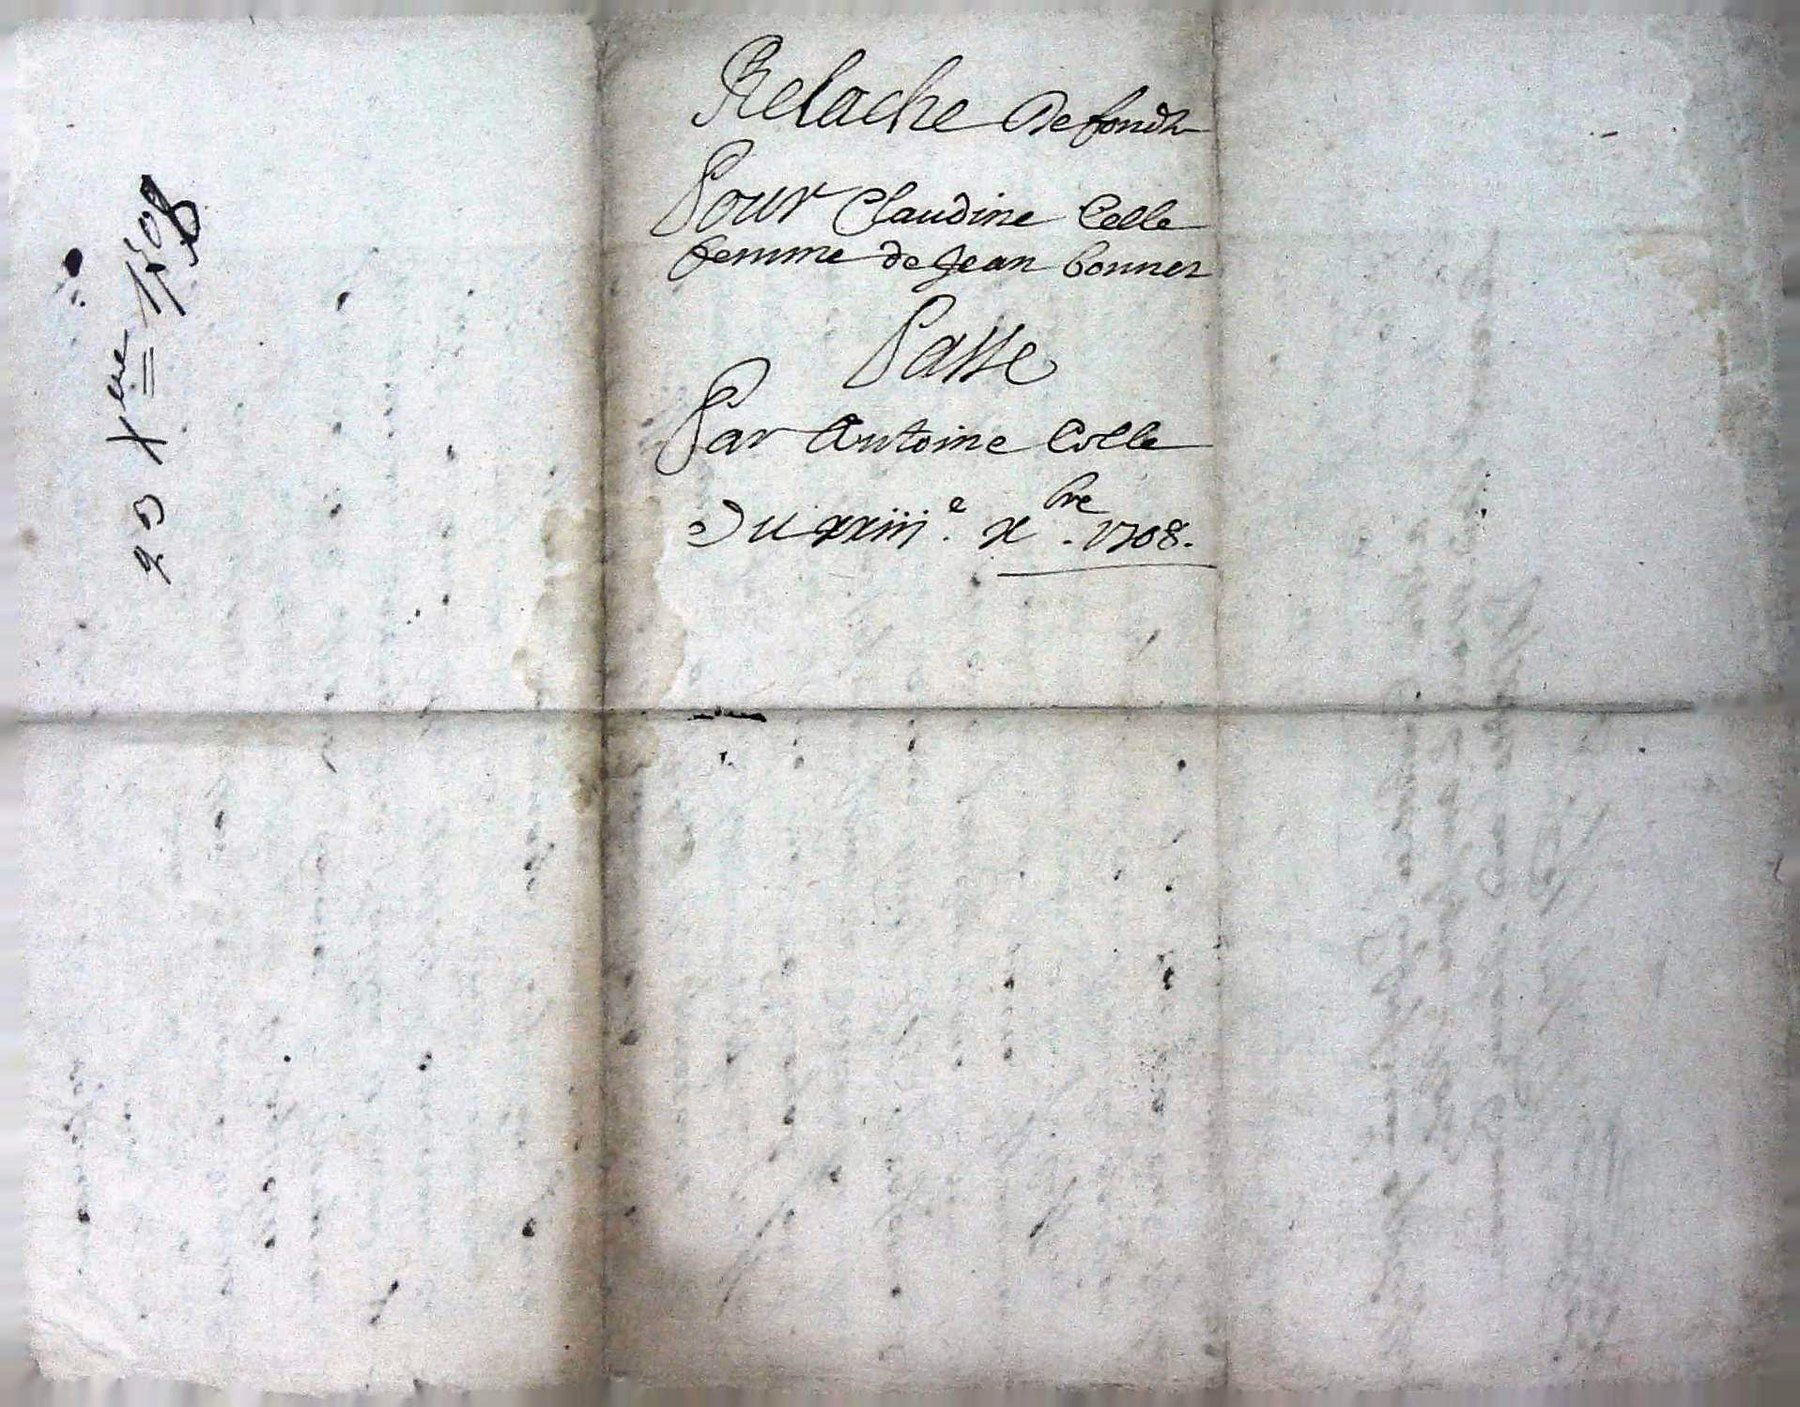 Relache de fonds
Pour Claudine Colle
femme de Jean bonnet
Passe
Par Antoine Colle
Du xxiiie. xbre. 1708.
23 Xbre 1708